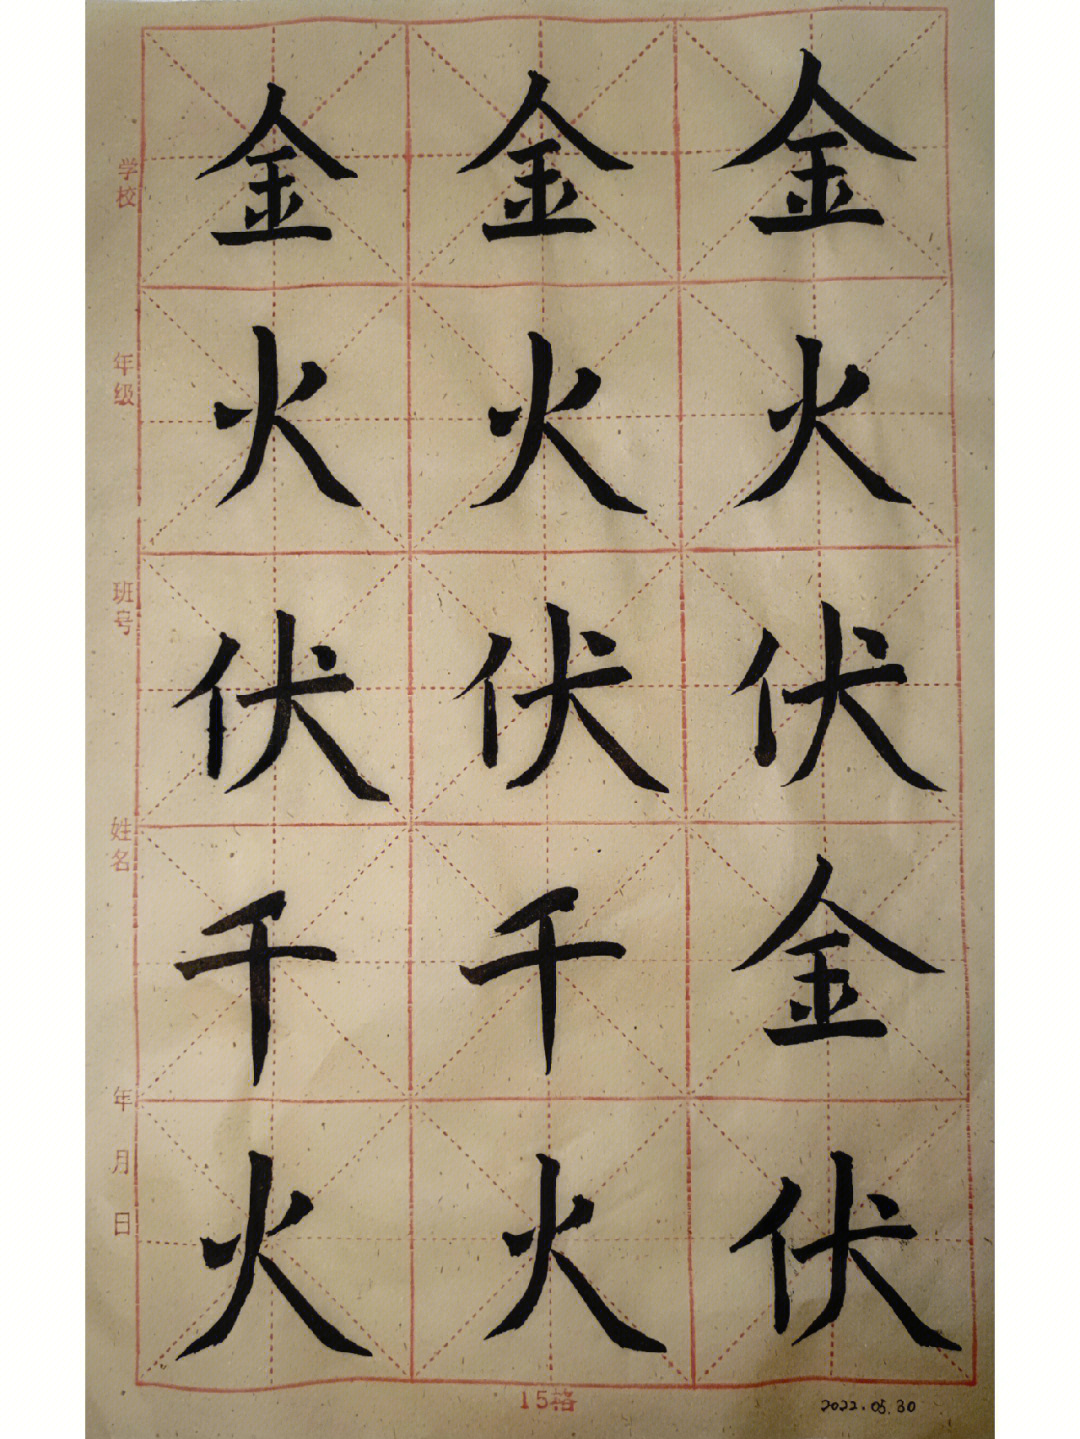 金金金
火火火
伏伏伏
千千金
火火伏
学校
年级
班号
姓名
年月日
15格
2022.05.30